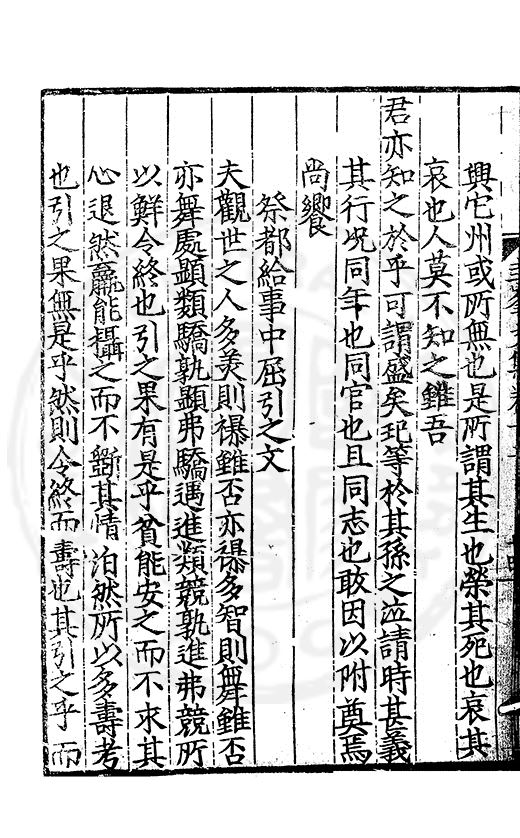 興它州或所無也是所謂其生也榮其死也哀其
哀也人莫不知之雖吾
君亦知之於乎可謂盛矣玘等於其孫之泣請時甚義
其行况同年也同官也且同志也敢因以附奠焉
尚饗
祭都給事中屈引之文
夫觀世之人多羨則禄雖否亦禄多智則舞雖否
亦舞處顯類驕孰顯弗驕遇進類競孰進弗競所
以鮮令終也引之果有是乎貧能安之而不求其
心退然羸能攝之而不斵其情泊然所以多壽考
也引之果無是乎然則令終而壽也其引之乎而